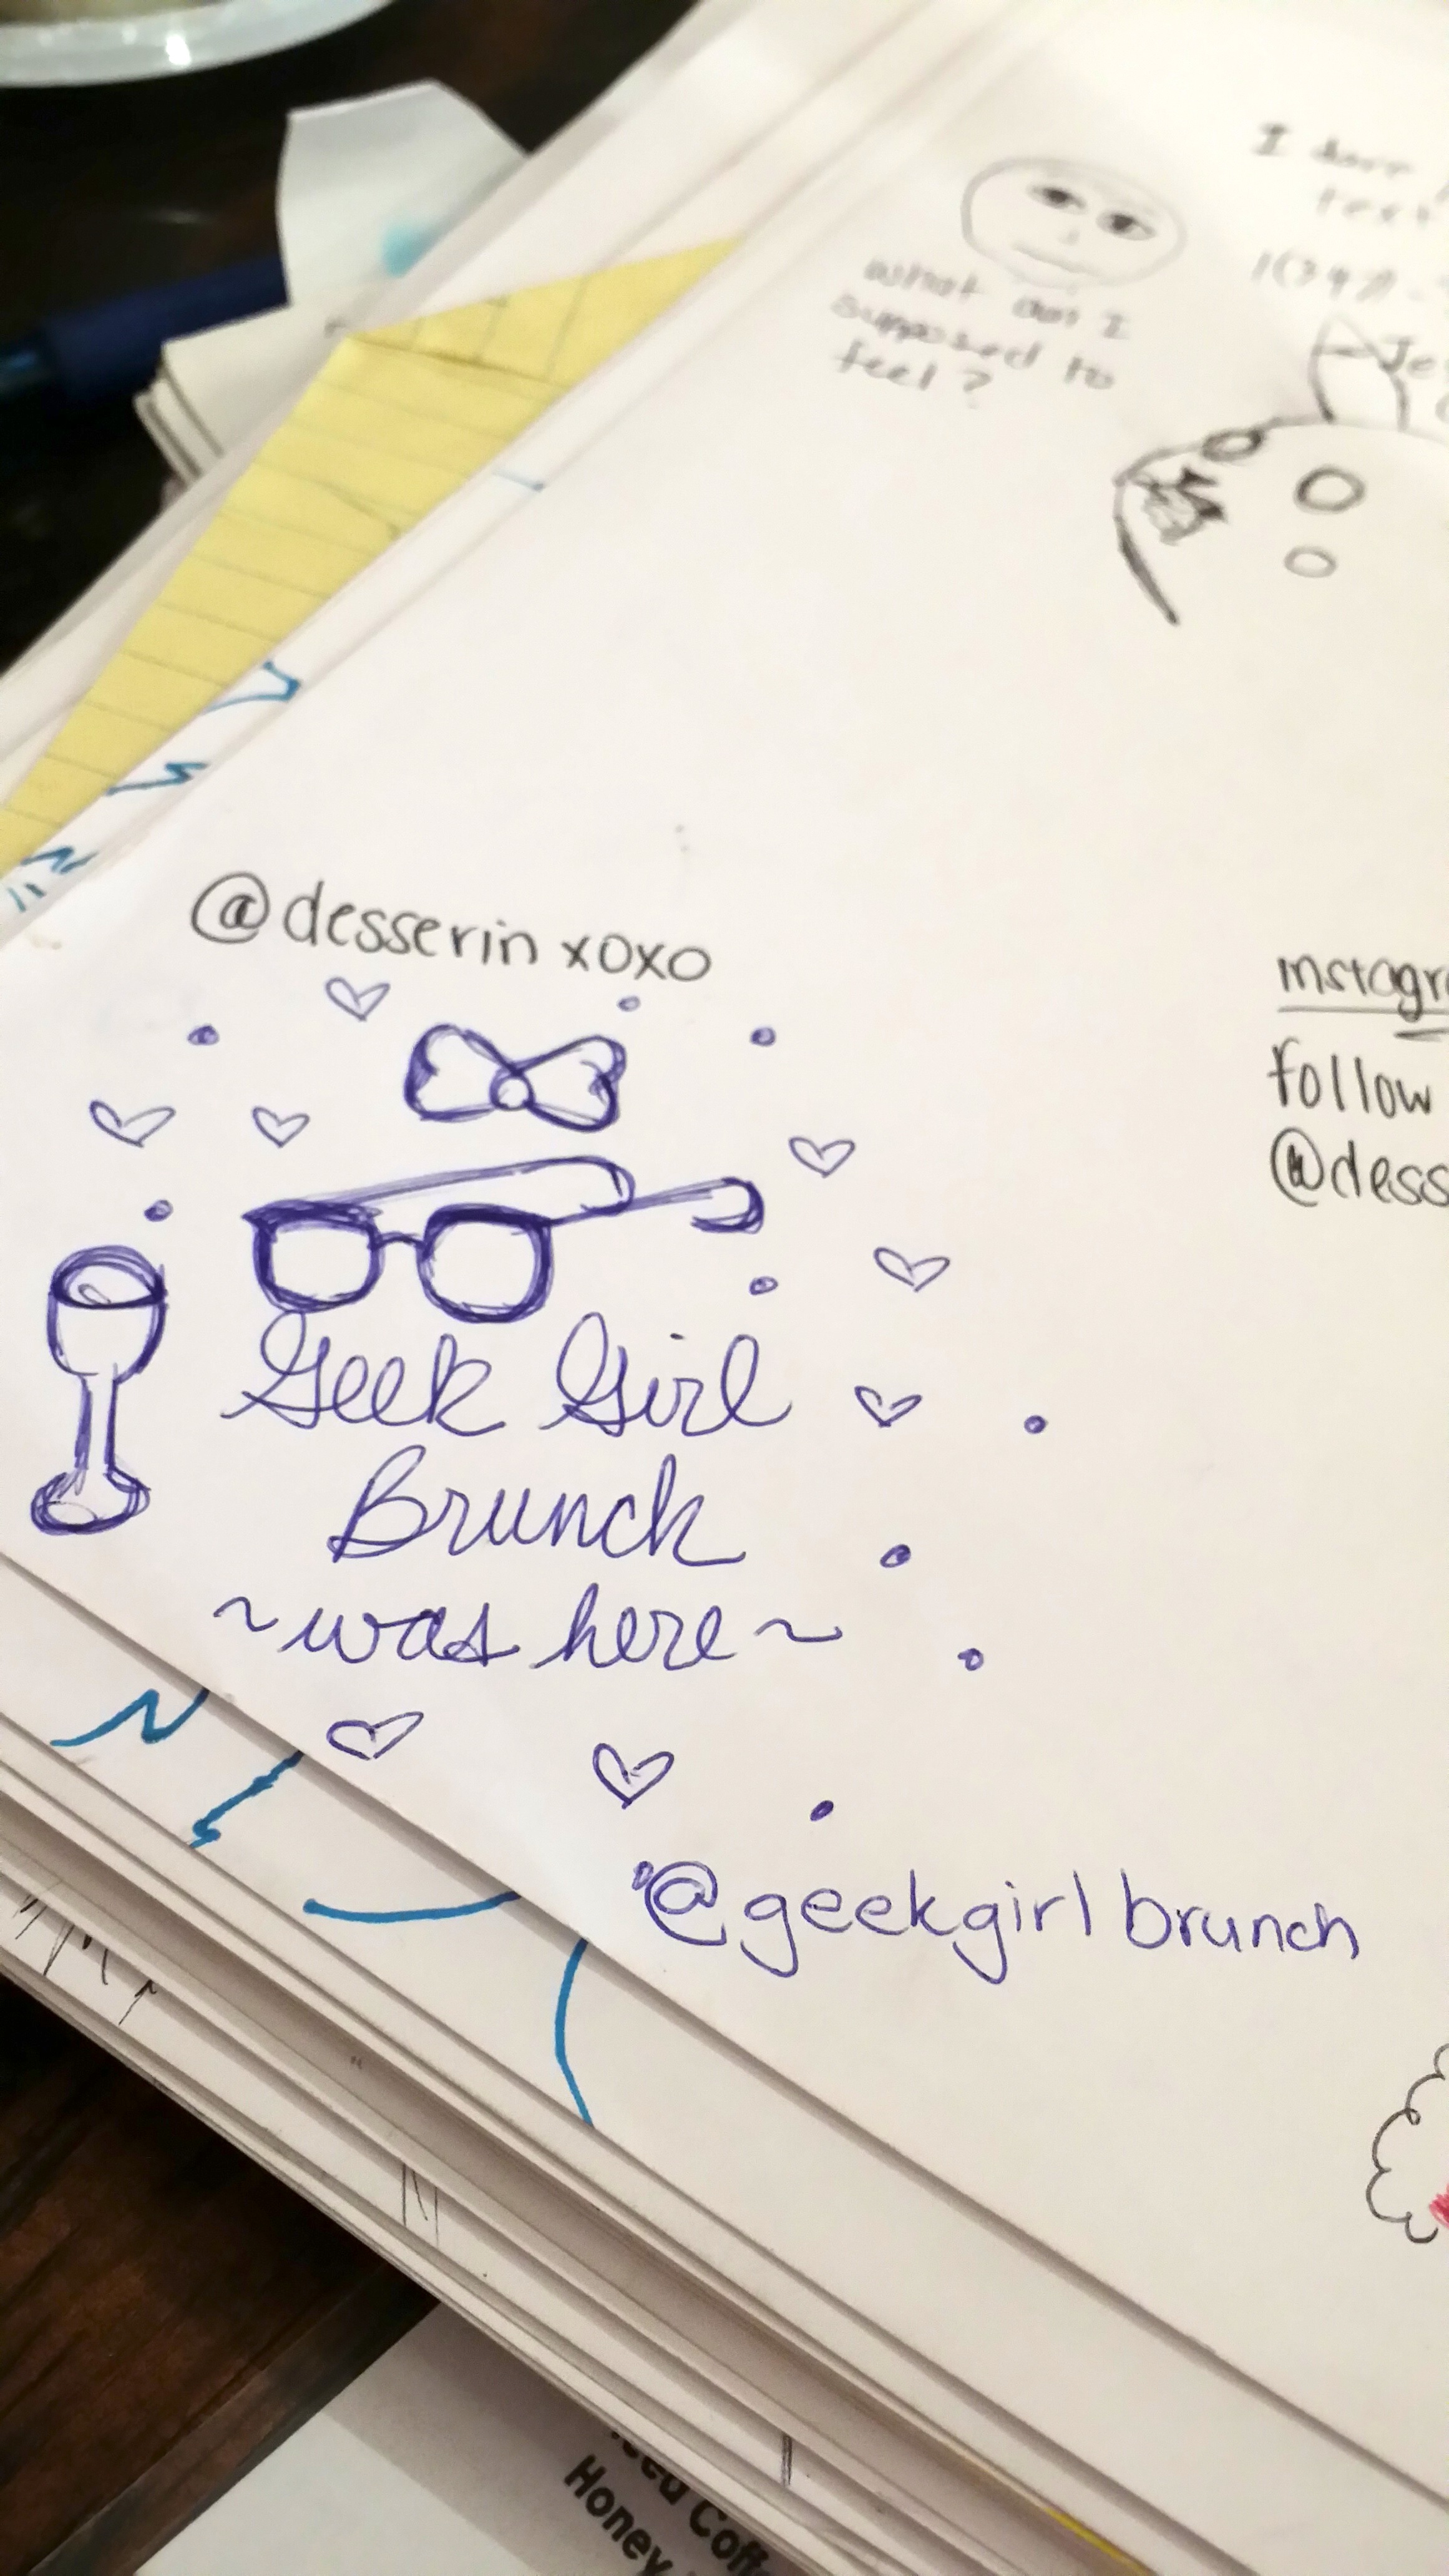 I
text
What am I
supposed to
feel?
@desserin xoxo
instagr
Follow
@dess
Geek Girl
Brunch
~was here~
@geekgirlbrunch
Coff
Honey